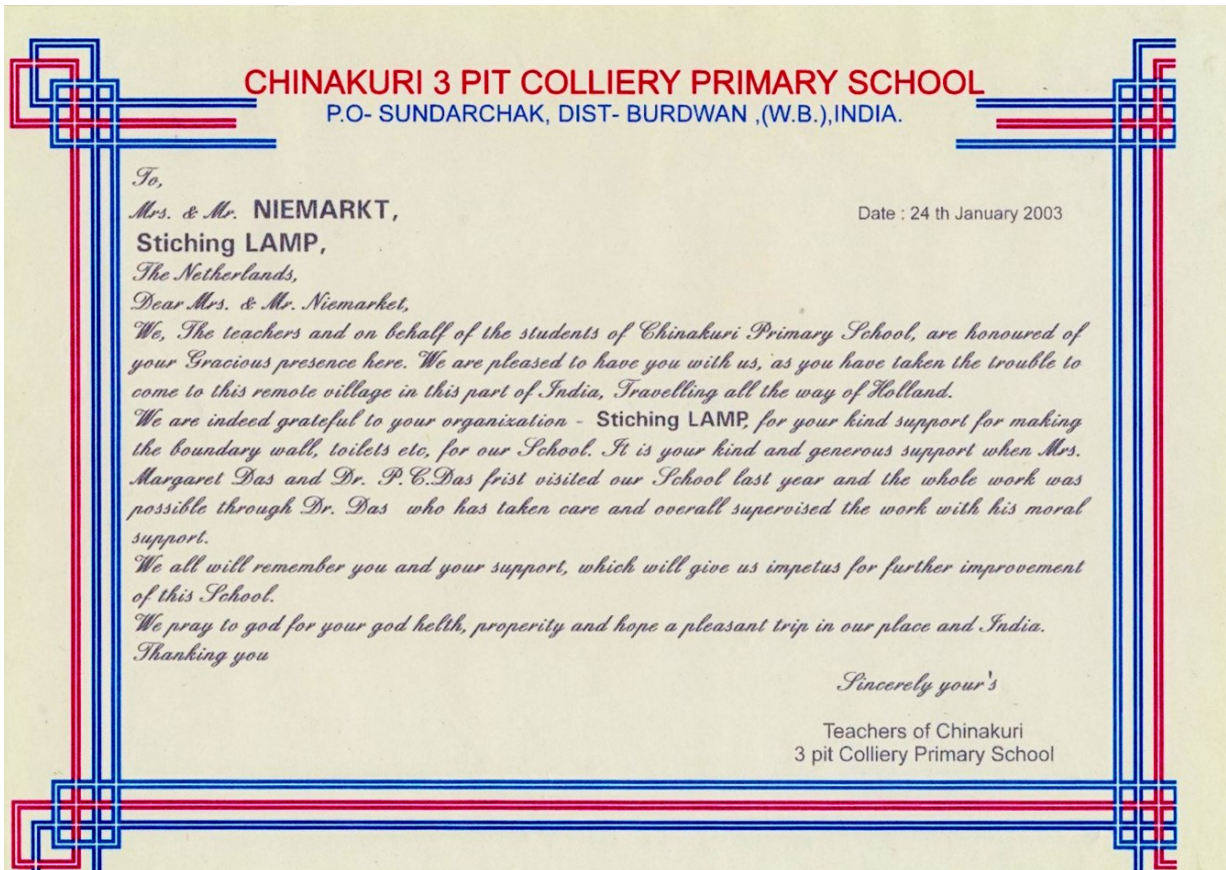 CHINAKURI 3 PIT COLLIERY PRIMARY SCHOOL
P.O- SUNDARCHAK, DIST- BURDWAN ,(W.B.),INDIA.
To,
Mrs. & Mr. NIEMARKT,
Date : 24 th January 2003
Stiching LAMP,
The Netherlands,
Dear Mrs. & Mr. Niemarket,
We, The teachers and on behalf of the students of Chinakuri Primary School, are honoured of
your Gracious presence here. We are pleased to have you with us, as you have taken the trouble to
come to this remote village in this part of India, Travelling all the way of Holland.
We are indeed grateful to your organization - Stiching LAMP, for your kind support for making
the boundary wall, toilets etc, for our School. It is your kind and generous support when Mrs.
Margaret Das and Dr. P.C.Das frist visited our School last year and the whole work was
possible through Dr. Das who has taken care and overall supervised the work with his moral
support.
We all will remember you and your support, which will give us impetus for further improvement
of this School.
We pray to god for your god helth, properity and hope a pleasant trip in our place and India.
Thanking you
Sincerely your's
Teachers of Chinakuri
3 pit Colliery Primary School